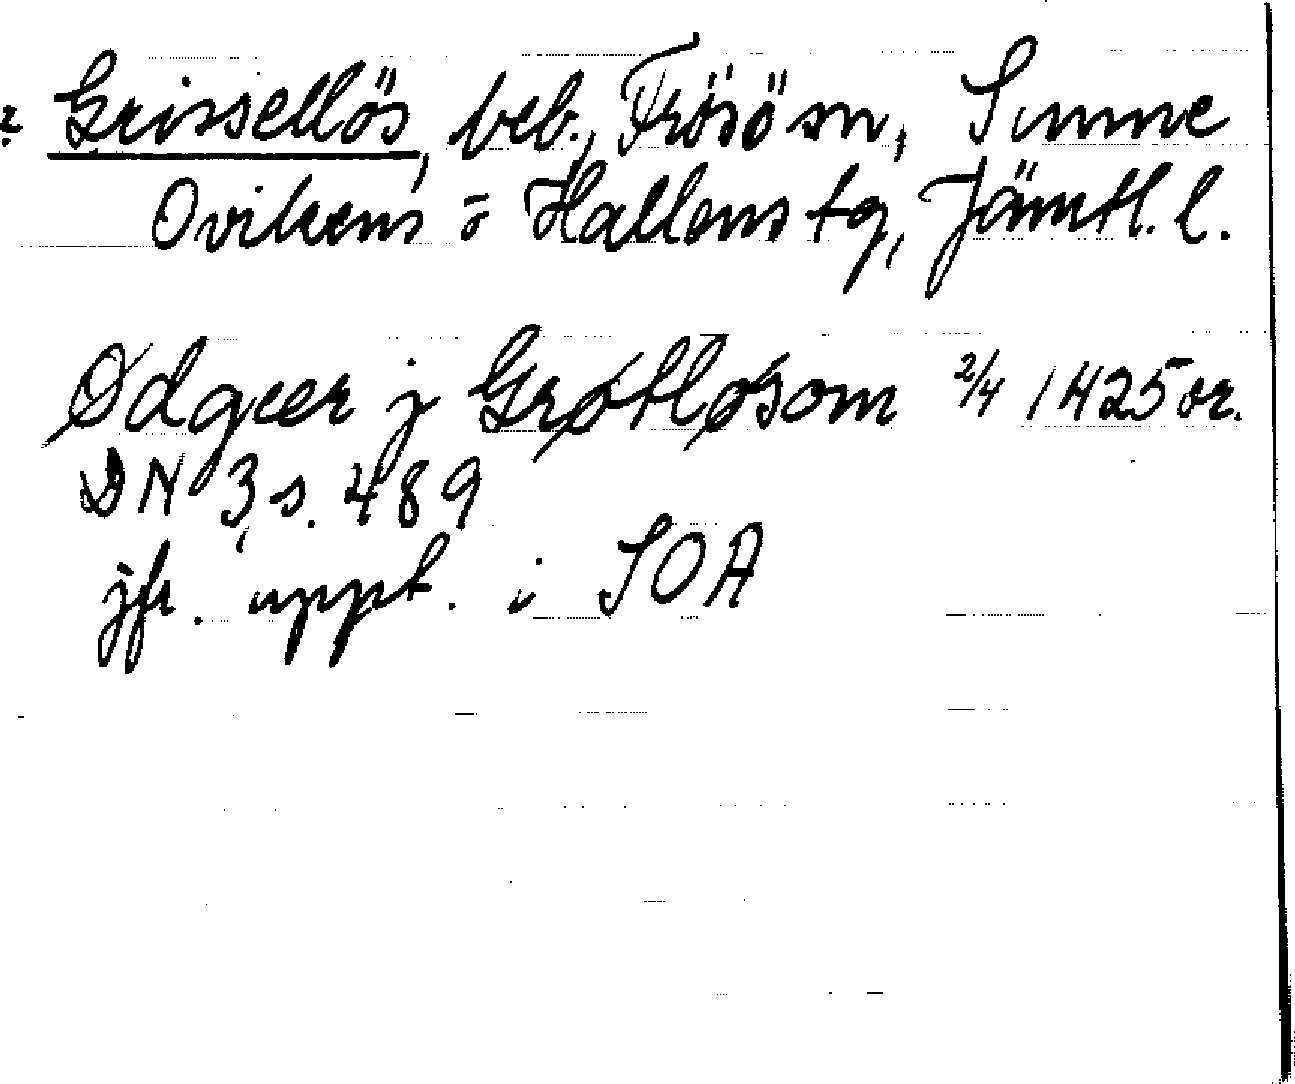 ? Grissellös, beb., Frösö sn, Sunne
Ovikens o Hallens tg, Jämtl. l.
Ødgeer j Grøtløsom 2/4 1425 or.
DN 3, s. 489
jfr. uppt. i SOA